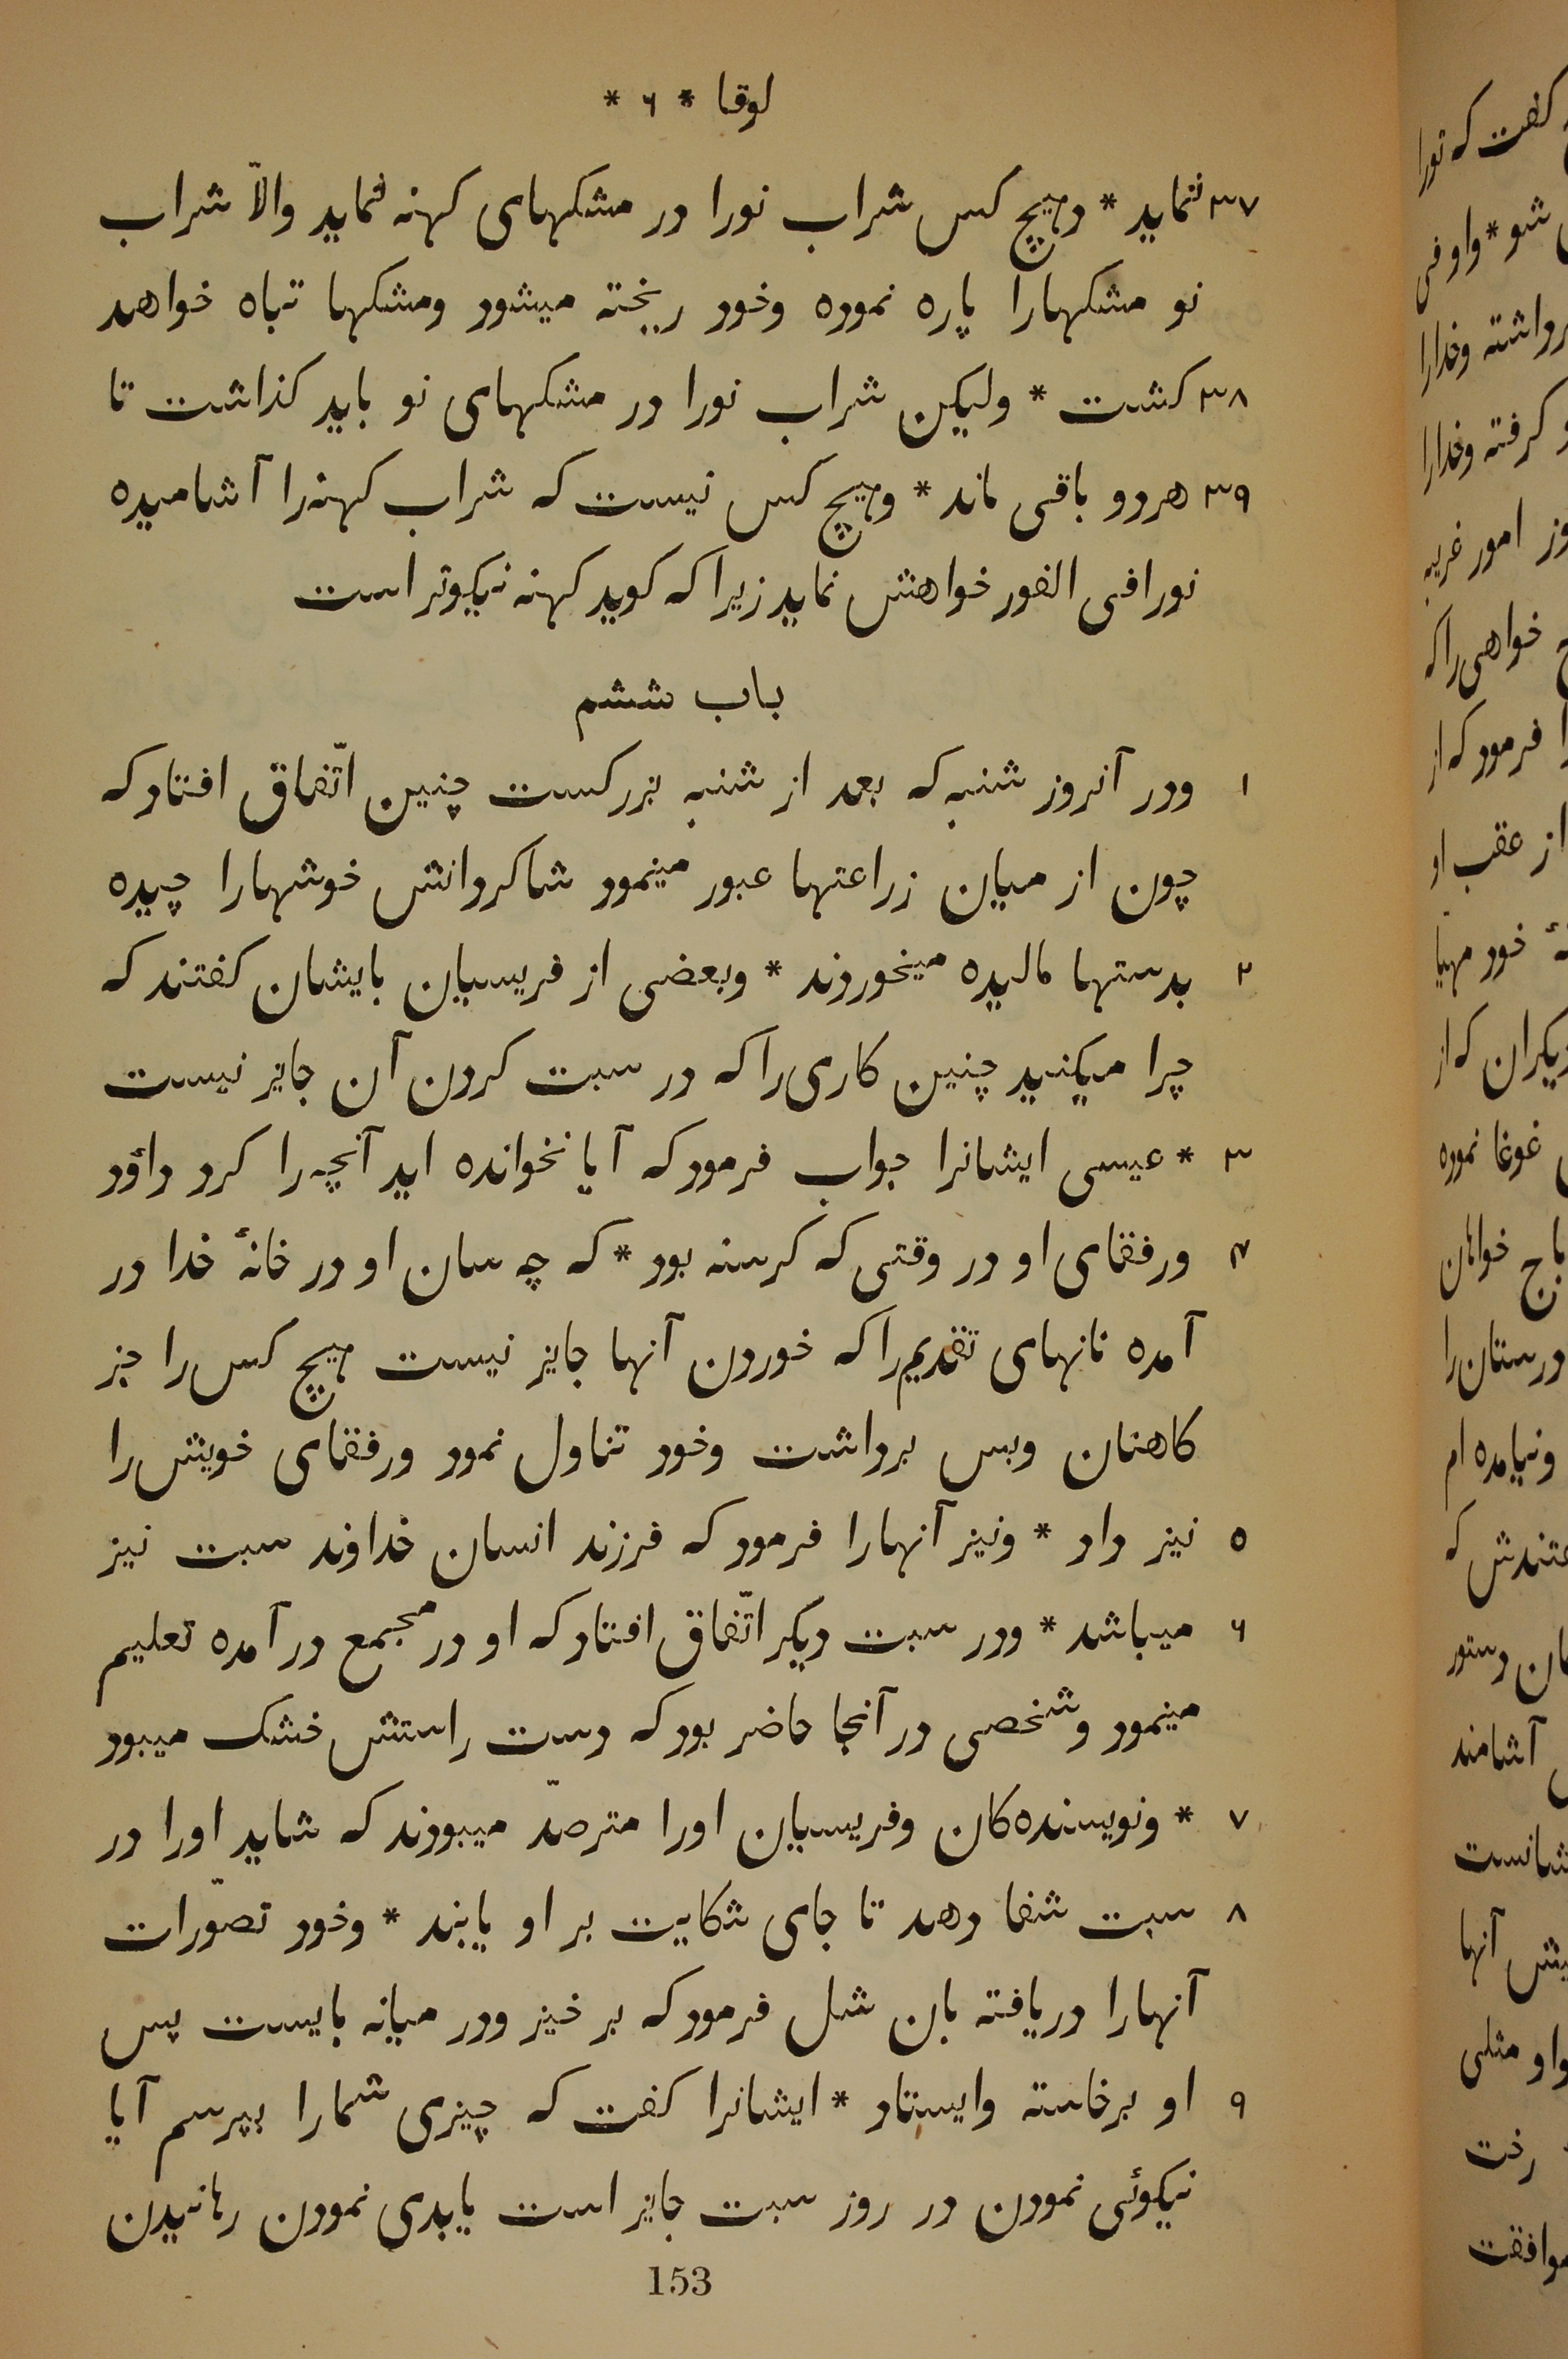 لوقا * ۶ *
۳۷ ننماید * وهیچ کس شراب نورا در مشکهای کهنه ننماید والّا شراب
نو مشکهارا پاره نموده وخود ریخته میشود ومشکها تباه خواهد
۳۸ کشت * ولیکن شراب نورا در مشکهای نو باید کذاشت تا
۳۹ هردو باقی ماند * وهیچ کس نیست که شراب کهنه‌را آشامیده
نورا فی الفور خواهش نماید زیرا که کوید کهنه نیکوتر است
باب ششم
۱ ودر آنروز شنبه که بعد از شنبه بزرکست چنین اتّفاق افتاد که
چون از میان زراعتها عبور مینمود شاکردانش خوشهارا چیده
۲ بدستها مالیده میخوردند * وبعضی از فریسیان بایشان کفتند که
چرا میکنید چنین کاری‌را که در سبت کردن آن جایز نیست
۳ * عیسی ایشانرا جواب فرمود که آیا نخوانده اید آنچه‌را کرد داؤد
۴ ورفقای او در وقتی که کرسنه بود * که چه سان او در خانهٔ خدا در
آمده نانهای تقدیم‌را که خوردن آنها جایز نیست هیچ کس‌را جز
کاهنان وبس برداشت وخود تناول نمود ورفقای خویش‌را
۵ نیز داد * ونیز آنهارا فرمود که فرزند انسان خداوند سبت نیز
۶ میباشد * ودر سبت دیکر اتّفاق افتاد که او در مجمع در آمده تعلیم
مینمود وشخصی در آنجا حاضر بود که دست راستش خشک میبود
۷ * ونویسنده‌کان وفریسیان اورا مترصّد میبودند که شاید اورا در
۸ سبت شفا دهد تا جای شکایت بر او یابند * وخود تصوّرات
آنهارا دریافته بان شل فرمود که بر خیز ودر میانه بایست پس
۹ او برخاسته وایستاد * ایشانرا کفت که چیزی شمارا بپرسم آیا
نیکوئی نمودن در روز سبت جایز است یابدی نمودن رهانیدن
153